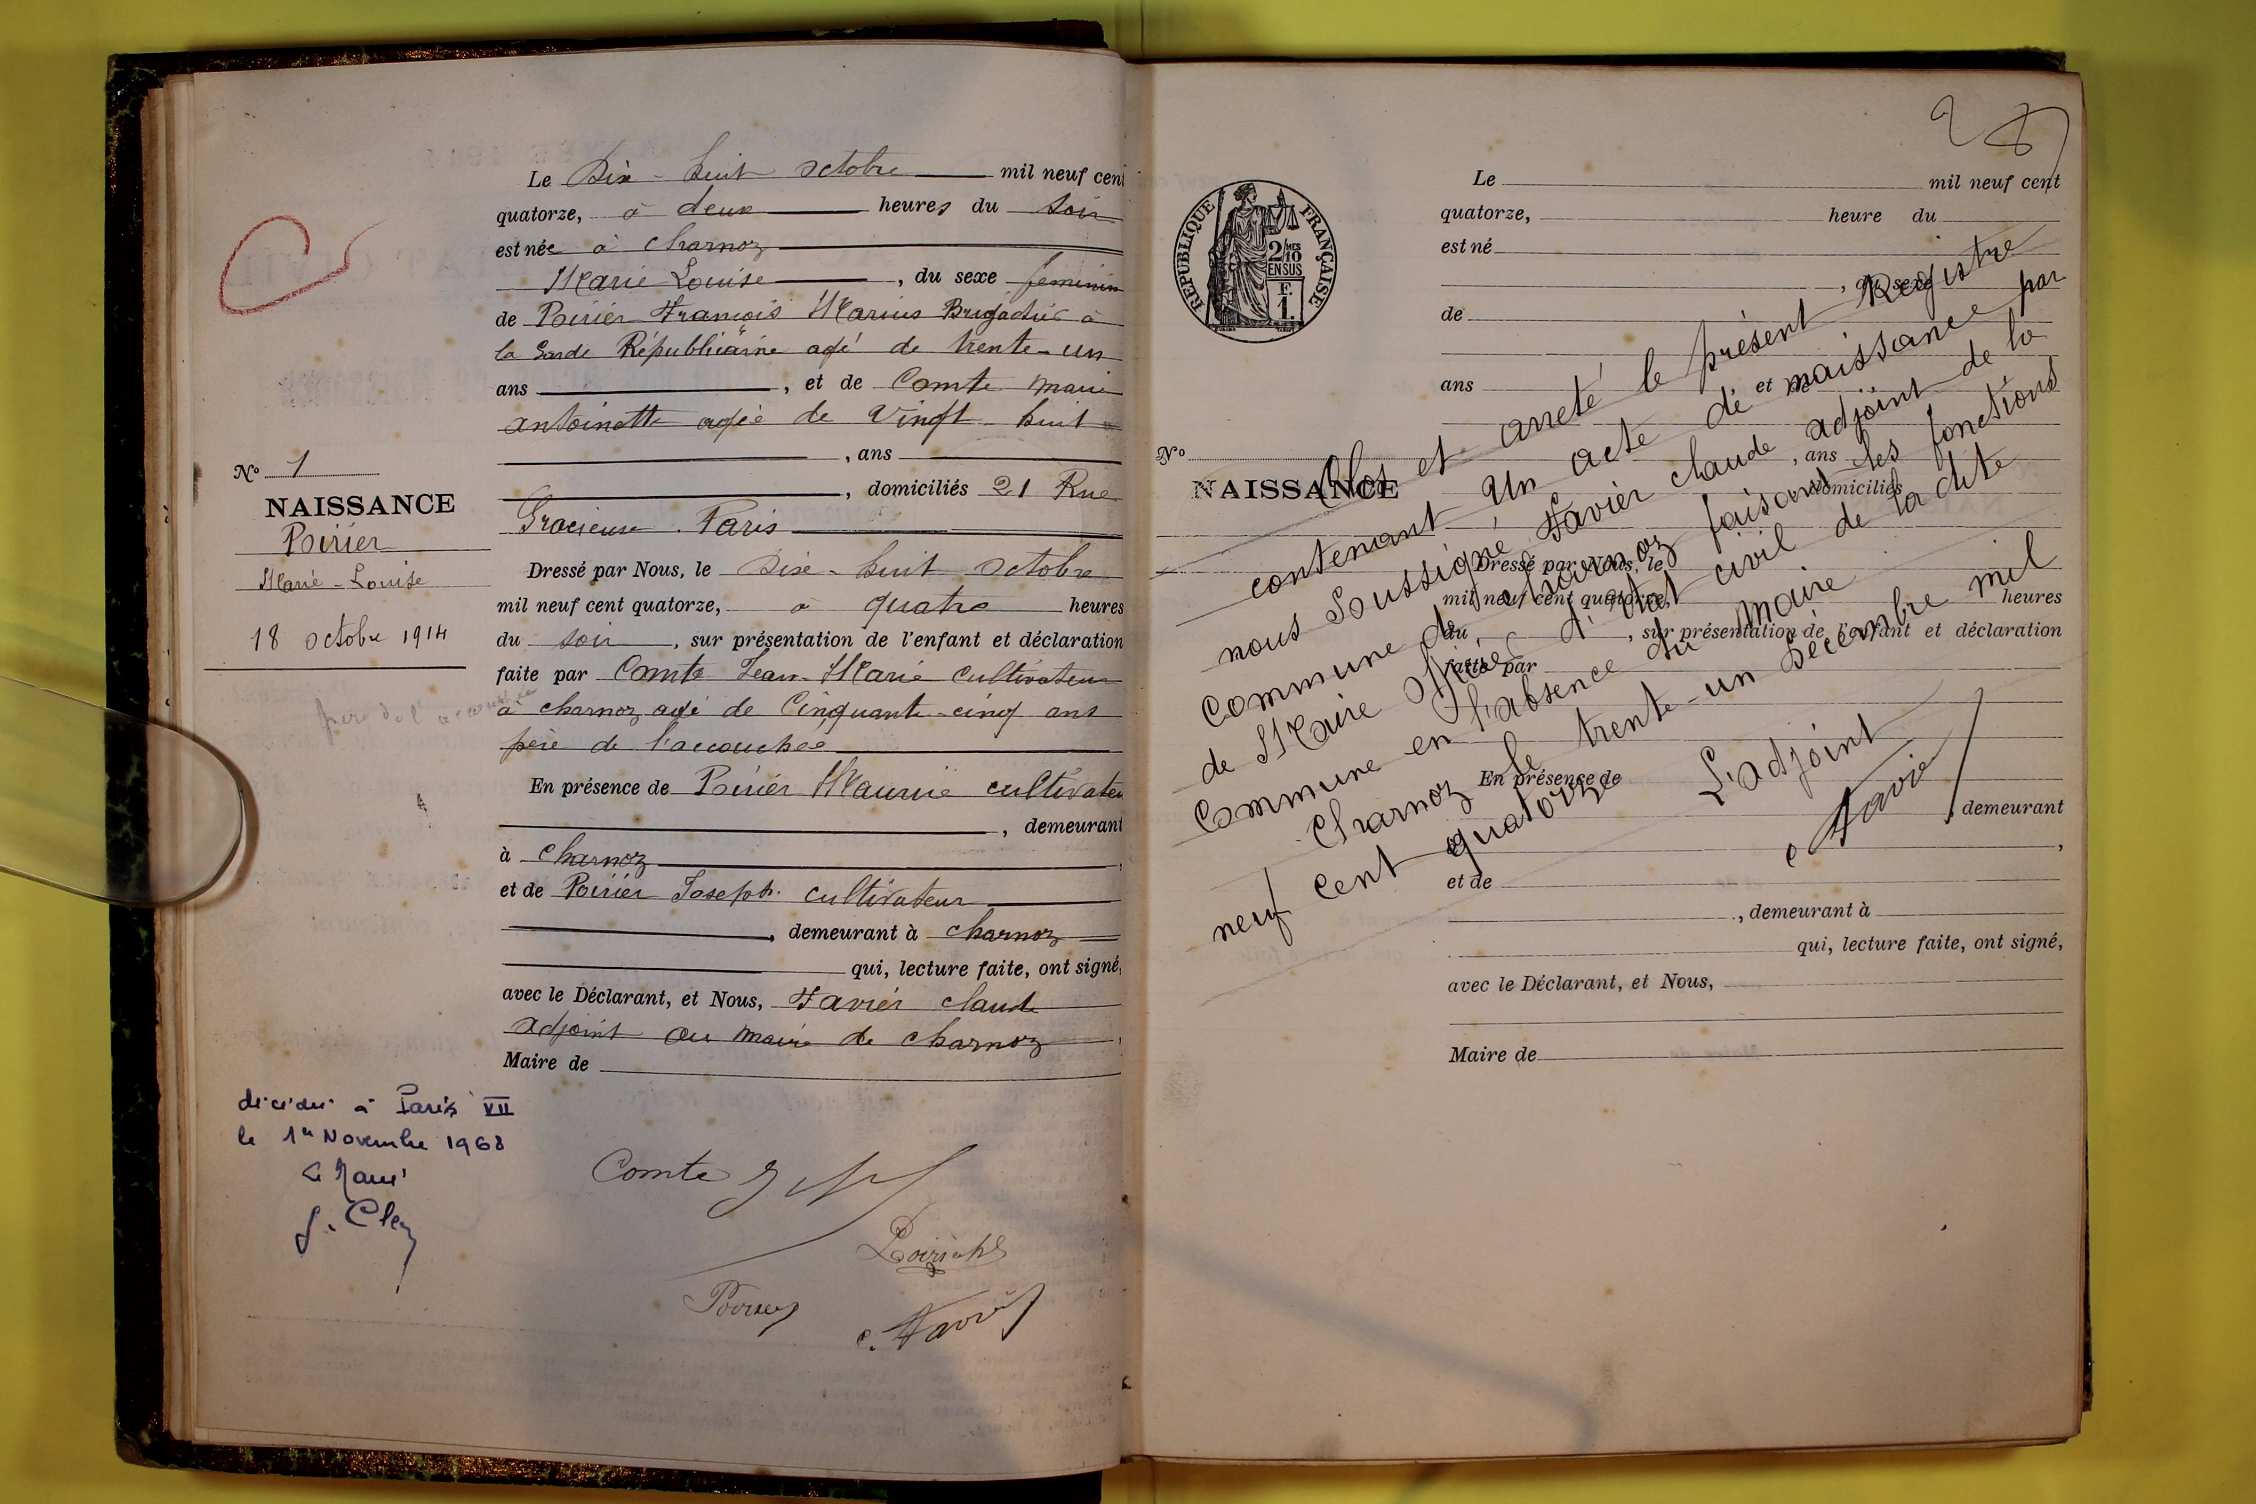 Le Dix-huit octobre mil neuf cent
quatorze, à deux heures du soir
est née à Charnoz
Marie Louise, du sexe feminin
de Poirier François Marius Brigadier à
la Garde Républicaine agé de trente-un
ans, et de Comte Marie
antoinette agée de Vingt-huit
, ans
, domiciliés 21 Rue
Gracieuse. Paris
Dressé par Nous, le Dix-huit octobre
mil neuf cent quatorze, à quatre heures
du soir, sur présentation de l'enfant et déclaration
faite par Comte Jean-Marie cultivateur
à charnoz agé de Cinquante-cinq ans
père de l'accouchée
En présence de Poirier Maurice cultivateu
, demeurant
à charnoz,
et de Poirier Joseph. cultivateur
, demeurant à charnoz
qui, lecture faite, ont signé,
avec le Déclarant, et Nous, Favier claude
adjoint au maire de charnoz,
Maire de
No 1
NAISSANCE
Poirier
Marie-Louise
18 octobre 1914
père de l'accouchée
décédée à Paris VII
le 1er Novembre 1968
Le Maire
Comte
c. Favier
28
RÉPUBLIQUE FRANÇAISE
2/10
EN SUS
F.
1.
Le mil neuf cent
quatorze, heure du
est né
, du sexe
de
ans , et de
, ans
No
NAISSANCE
domiciliés
Dressé par Nous, le
mil neuf cent quatorze, heures
du , sur présentation de l'enfant et déclaration
faite par
En présence de
, demeurant
à ,
et de
, demeurant à
qui, lecture faite, ont signé,
avec le Déclarant, et Nous,
Maire de
Clos et arreté le présent Registre
contenant Un acte de naissance par
nous soussigné, Favier claude adjoint de la
Commune de charnoz faisant les fonctions
de Maire Officier d'état civil de la dite
Commune en l'absence du maire
Charnoz le trente-un Décembre mil
neuf cent quatorze
L'adjoint
c Favier